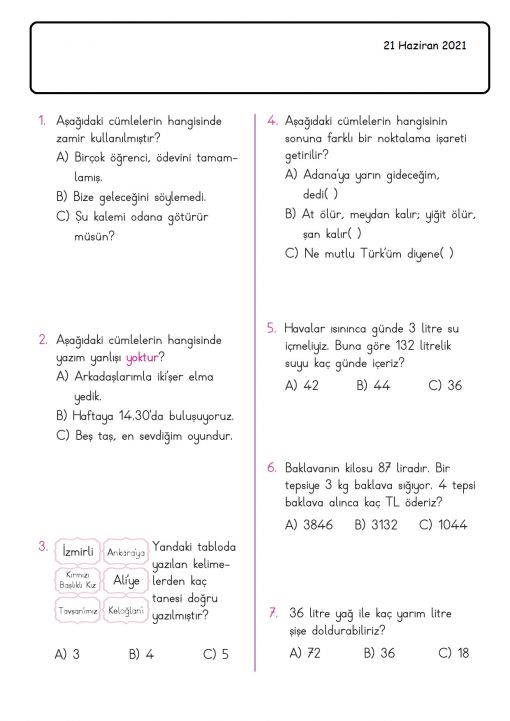 21 Haziran 2021
1. Aşağıdaki cümlelerin hangisinde
zamir kullanılmıştır?
A) Birçok öğrenci, ödevini tamam-
lamış.
B) Bize geleceğini söylemedi.
C) Şu kalemi odana götürür
müsün?
2. Aşağıdaki cümlelerin hangisinde
yazım yanlışı yoktur?
A) Arkadaşlarımla iki'şer elma
yedik.
B) Haftaya 14.30'da buluşuyoruz.
C) Beş taş, en sevdiğim oyundur.
3. İzmirli Ankara'ya
Kırmızı
Başlıklı Kız Ali'ye
Tavşan'ımız Keloğlan'ı
Yandaki tabloda
yazılan kelime-
lerden kaç
tanesi doğru
yazılmıştır?
A) 3 B) 4 C) 5
4. Aşağıdaki cümlelerin hangisinin
sonuna farklı bir noktalama işareti
getirilir?
A) Adana'ya yarın gideceğim,
dedi( )
B) At ölür, meydan kalır; yiğit ölür,
şan kalır( )
C) Ne mutlu Türk'üm diyene( )
5. Havalar ısınınca günde 3 litre su
içmeliyiz. Buna göre 132 litrelik
suyu kaç günde içeriz?
A) 42 B) 44 C) 36
6. Baklavanın kilosu 87 liradır. Bir
tepsiye 3 kg baklava sığıyor. 4 tepsi
baklava alınca kaç TL öderiz?
A) 3846 B) 3132 C) 1044
7. 36 litre yağ ile kaç yarım litre
şişe doldurabiliriz?
A) 72 B) 36 C) 18